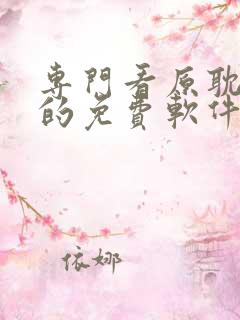 專門看原耽
的免費軟件
依娜